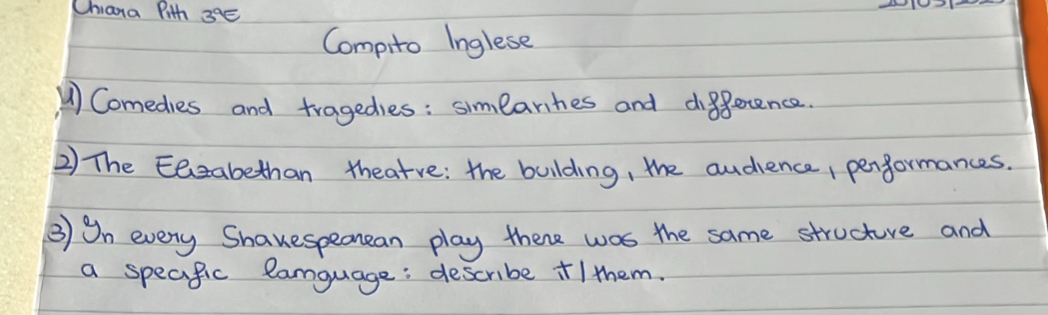 Chiara Pith 3ªE
Compito Inglese
1) Comedies and tragedies: similarities and difference.
2) The Elizabethan theatre: the building, the audience, performances.
3) In every Shakespearean play there was the same structure and
a specific language: describe it/them.